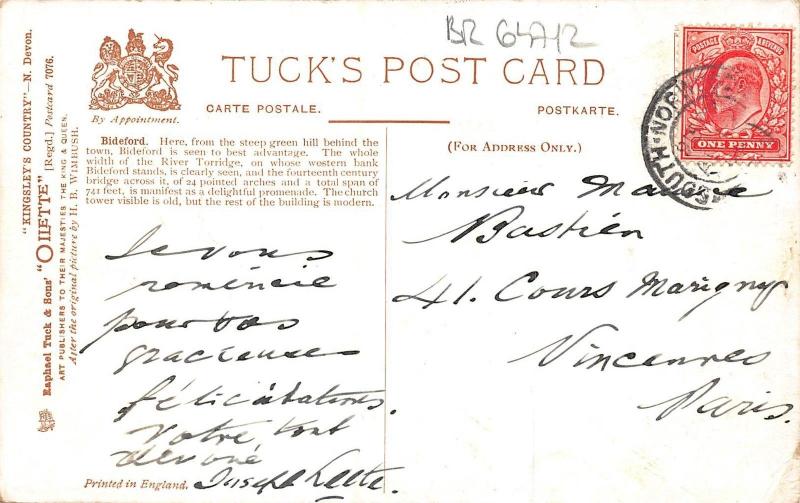 BR 64712
TUCK'S POST CARD
CARTE POSTALE.
POSTKARTE.
By Appointment.
(FOR ADDRESS ONLY.)
Bideford. Here, from the steep green hill behind the
town, Bideford is seen to best advantage. The whole
width of the River Torridge, on whose western bank
Bideford stands, is clearly seen, and the fourteenth century
bridge across it, of 24 pointed arches and a total span of
741 feet, is manifest as a delightful promenade. The church
tower visible is old, but the rest of the building is modern.
"KINGSLEY'S COUNTRY"—N. Devon.
"OILETTE" [Regd.] Postcard 7076.
Raphael Tuck & Sons'
ART PUBLISHERS TO THEIR MAJESTIES THE KING & QUEEN.
After the original picture by H. B. WIMBUSH.
Je vous
remercie
pour vos
gracieuses
félicitations.
Votre tout
dévoué
Joseph
Printed in England.
POSTAGE & REVENUE
ONE PENNY
Monsieur Maurice
Bastién
41. Cours Marigny
Vincennes
Paris.